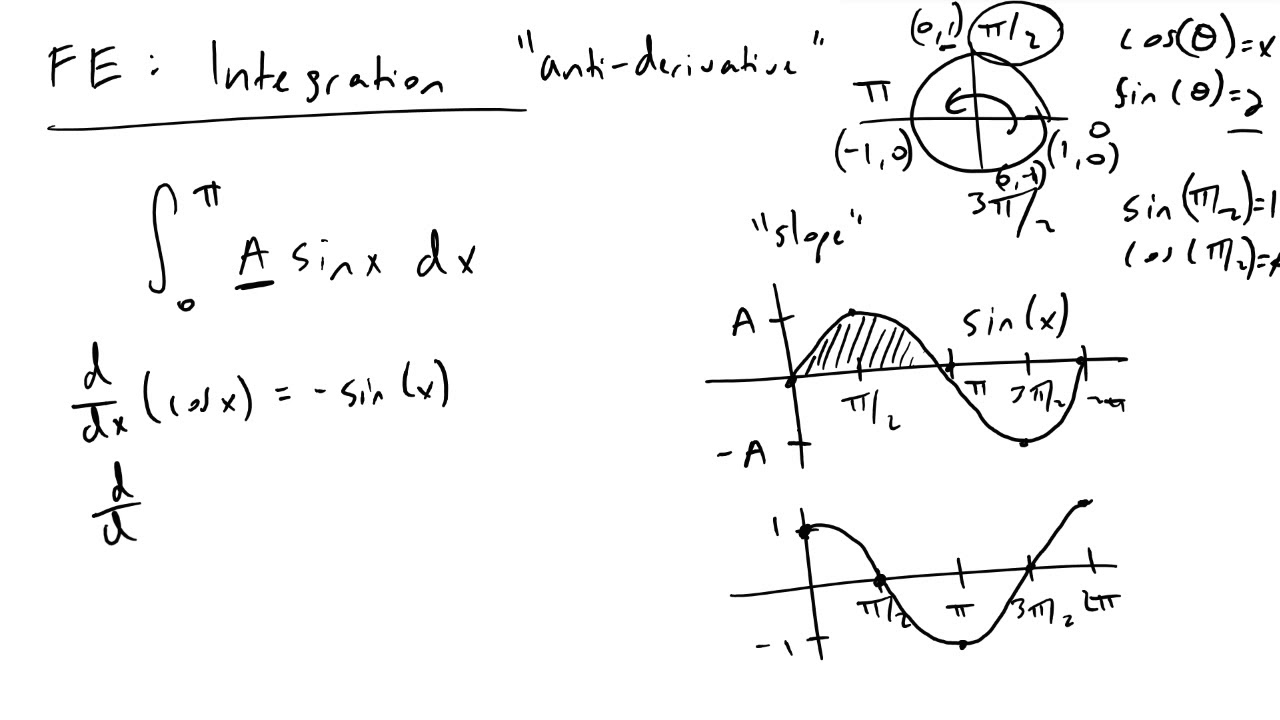 FE: Integration "anti-derivative"
∫₀^π A sin x dx
d/dx (cos x) = - sin(x)
d/d
(0,1) π/2
π
(-1,0)
0
(1,0)
(0,-1)
3π/2
cos(θ)=x
sin(θ)=y
sin(π/2)=1
cos(π/2)=
"slope"
A
sin(x)
π/2 π 3π/2
-A
1
π/2 π 3π/2 2π
-1